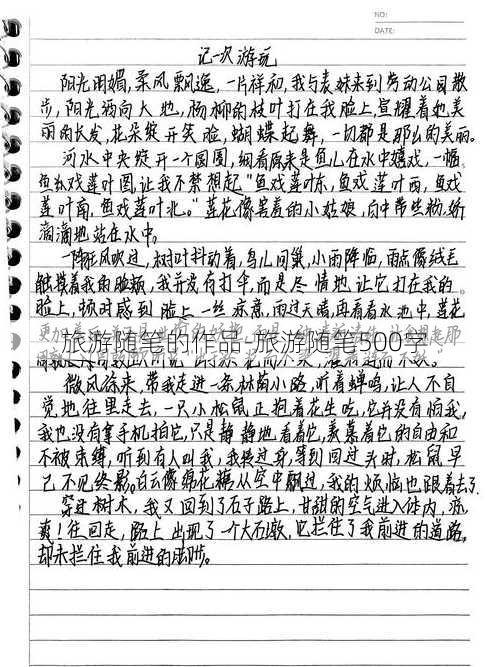 NO:
DATE:
记一次游玩
阳光明媚,柔风飘逸,一片祥和,我与表妹来到劳动公园散
步,阳光洒向大地,杨柳的枝叶打在我脸上,宣耀着她美
丽的长发,花朵绽开笑脸,蝴蝶起舞,一切都是那么的美丽。
河水中央绽开一个圆圈,细看原来是鱼儿在水中嬉戏,一幅
鱼儿戏莲叶图,让我不禁想起"鱼戏莲叶东,鱼戏莲叶西,鱼戏
莲叶南,鱼戏莲叶北。"莲花像害羞的小姑娘,白中带些粉,娇
滴滴地站在水中。
一阵狂风吹过,树叶抖动着,鸟儿回巢,小雨降临,雨点像绒毛
触摸着我的脸颊,我并没有打伞,而是尽情地让它打在我的
脸上,顿时感到脸上一丝凉意,雨过天晴,再看看水池中,莲花
旅游随笔的作品-旅游随笔500字
微风徐来,带我走进一条林荫小路,听着蝉鸣,让人不自
觉地往里走去,一只小松鼠正抱着花生吃,它并没有怕我,
我也没有拿手机拍它,只是静静地看着它,羡慕着它的自由和
不被束缚,听到有人叫我,我转过身,等到回过头时,松鼠早
已不见终影。白云像棉花糖从空中飘过,我的烦恼也跟着去了。
穿过树木,我又回到了石子路上,甘甜的空气进入体内,凉
爽!往回走,路上出现了一个大石墩,它拦住了我前进的道路,
却未拦住我前进的脚步。